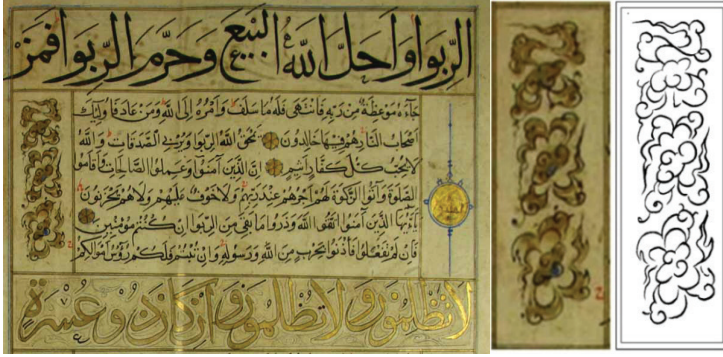 الربوا وأحل الله البيع وحرم الربوا فمن
جاءه موعظة من ربه فانتهى فله ما سلف وأمره إلى الله ومن عاد فأولئك
أصحاب النار هم فيها خالدون يمحق الله الربوا ويربي الصدقات والله
لا يحب كل كفار أثيم إن الذين آمنوا وعملوا الصالحات وأقاموا
الصلوة وآتوا الزكوة لهم أجرهم عند ربهم ولا خوف عليهم ولا هم يحزنون
يا أيها الذين آمنوا اتقوا الله وذروا ما بقي من الربوا إن كنتم مؤمنين
فإن لم تفعلوا فأذنوا بحرب من الله ورسوله وإن تبتم فلكم رؤس أموالكم
لا تظلمون ولا تظلمون وإن كان ذو عسرة